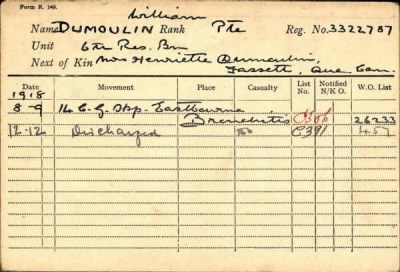 Form R. 149.
William
Name DUMOULIN Rank Pte Reg. No. 3322787
Unit 6th Res. Bn
Next of Kin Mrs Henriette Dumoulin,
Fassett, Que Can.
Date Movement Place Casualty List No. Notified N/K O. W.O. List
1918
8-9 14 C. G. Hsp. Eastbourne
Bronchitis C306 26233
12.12 Discharged do C391 457